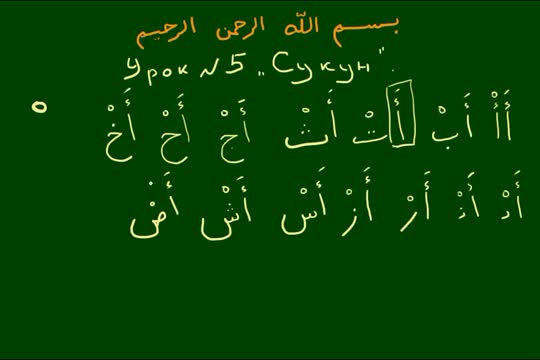 بسم الله الرحمن الرحيم
Урок №5 „Сукун".
أَأْ أَبْ أَتْ أَثْ أَجْ أَحْ أَخْ
أَدْ أَذْ أَرْ أَزْ أَسْ أَشْ أَصْ